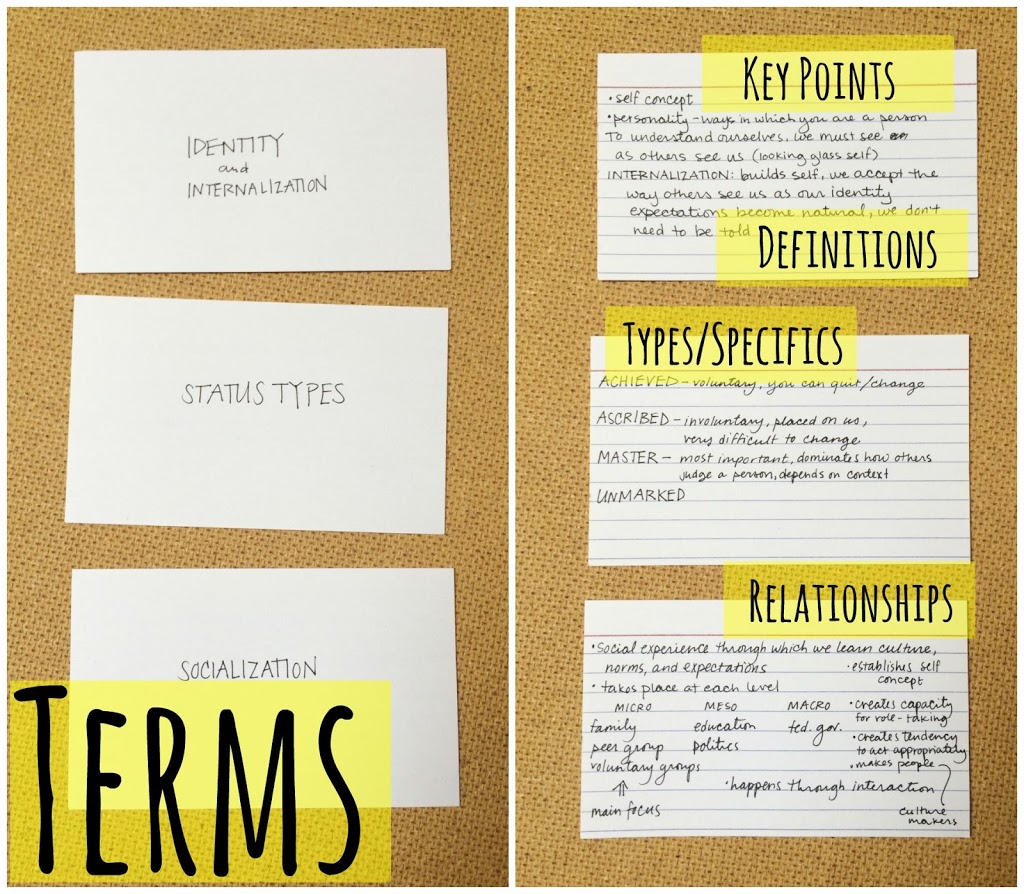 IDENTITY
and
INTERNALIZATION
STATUS TYPES
SOCIALIZATION
TERMS
KEY POINTS
• self concept
• personality - ways in which you are a person
To understand ourselves, we must see
as others see us (looking glass self)
INTERNALIZATION: builds self, we accept the
way others see us as our identity
expectations become natural, we don't
need to be told
DEFINITIONS
TYPES/SPECIFICS
ACHIEVED - voluntary, you can quit/change
ASCRIBED - involuntary, placed on us,
very difficult to change
MASTER - most important, dominates how others
judge a person, depends on context
UNMARKED
RELATIONSHIPS
• Social experience through which we learn culture,
norms, and expectations
• establishes self
concept
• takes place at each level
MICRO MESO MACRO
family education fed. gov.
peer group politics
voluntary groups
⇑
main focus
• creates capacity
for role-taking
• creates tendency
to act appropriately
• makes people
• happens through interaction
culture
makers